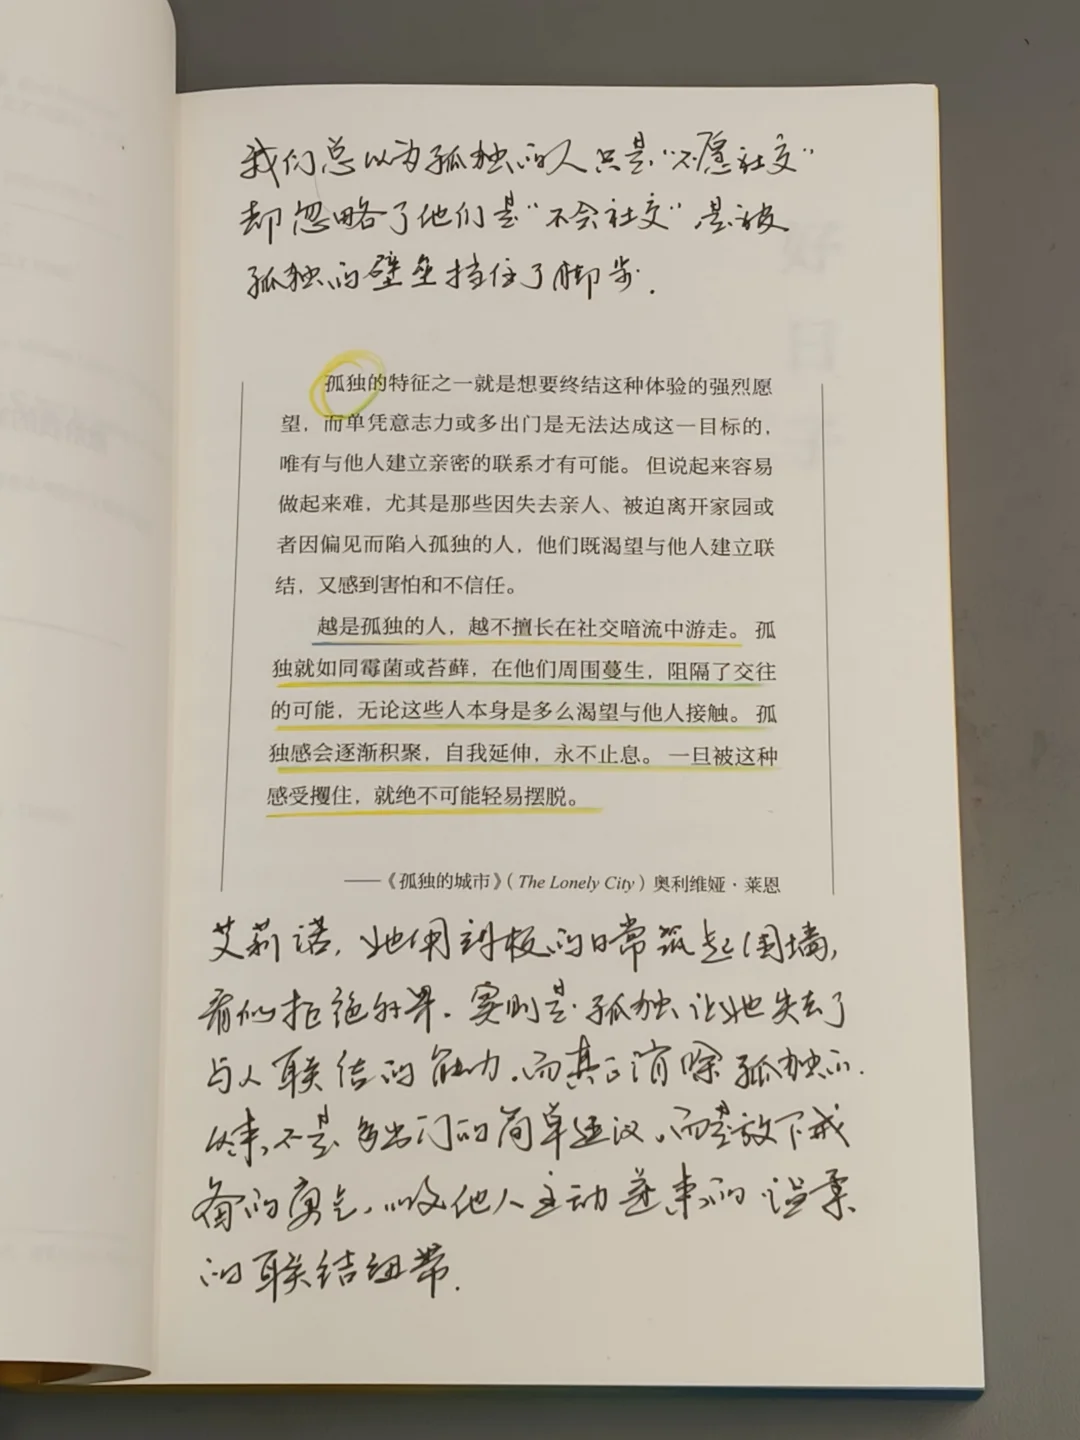 我们总以为孤独的人只是“不愿社交”
却忽略了他们是“不会社交”是被
孤独的壁垒挡住了脚步.
孤独的特征之一就是想要终结这种体验的强烈愿
望，而单凭意志力或多出门是无法达成这一目标的，
唯有与他人建立亲密的联系才有可能。但说起来容易
做起来难，尤其是那些因失去亲人、被迫离开家园或
者因偏见而陷入孤独的人，他们既渴望与他人建立联
结，又感到害怕和不信任。
越是孤独的人，越不擅长在社交暗流中游走。孤
独就如同霉菌或苔藓，在他们周围蔓生，阻隔了交往
的可能，无论这些人本身是多么渴望与他人接触。孤
独感会逐渐积聚，自我延伸，永不止息。一旦被这种
感受攫住，就绝不可能轻易摆脱。
——《孤独的城市》（The Lonely City）奥利维娅·莱恩
艾莉诺，她用刻板的日常筑起围墙，
看似拒绝外界.实则是孤独让她失去了
与人联结的能力.而真正消除孤独的.
从来不是多出门的简单建议.而是放下戒
备的勇气.以及他人主动递来的温柔
的联结纽带.